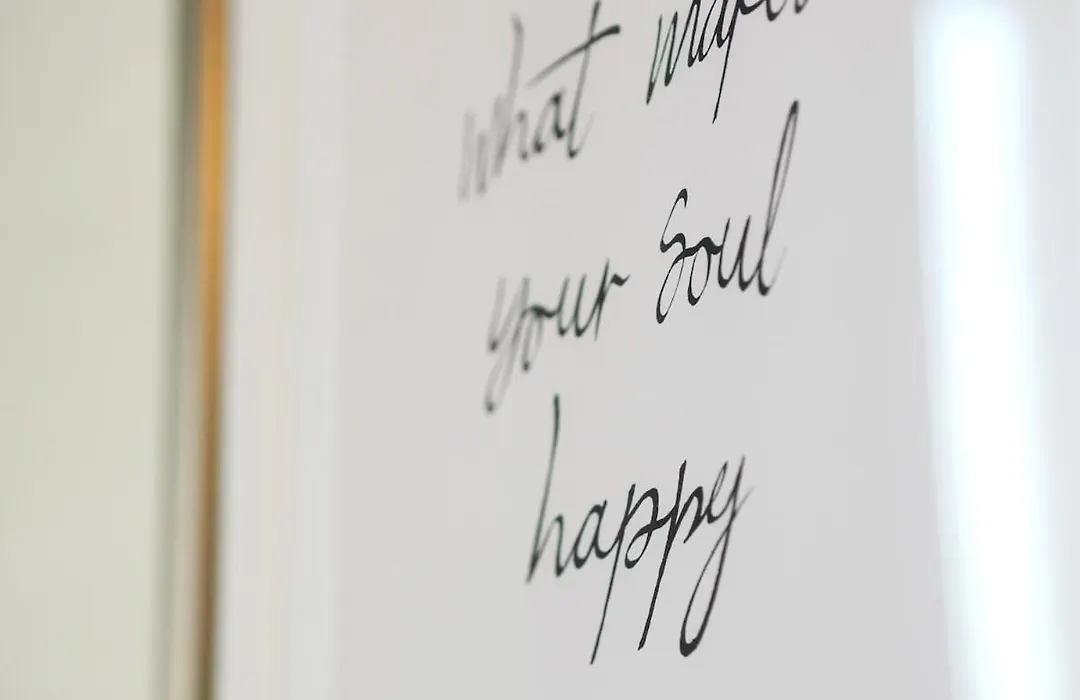 what makes
your Soul
happy